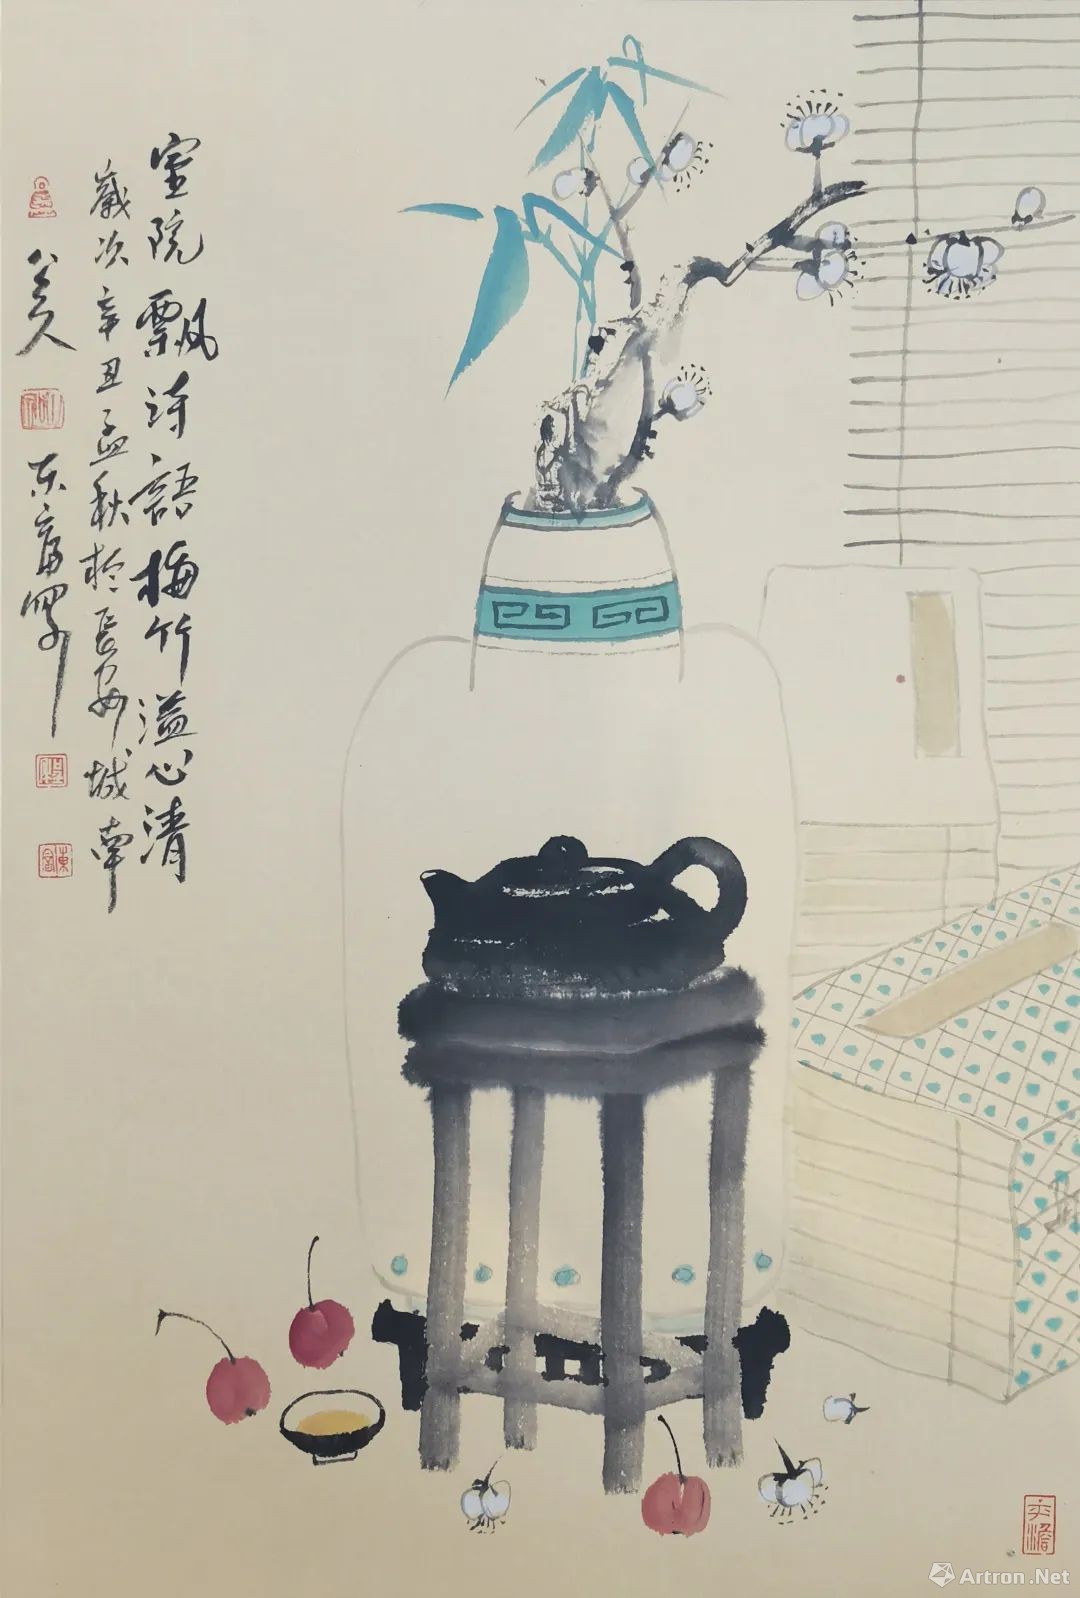 室院飘诗語梅竹溢心清
歲次辛丑孟秋於長安城南
东富
東富
Artron.Net